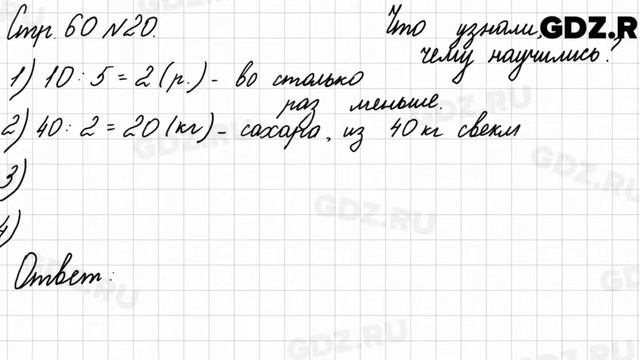 Стр. 60 №20.
Что узнали,
чему научились?
GDZ.R
1) 10 : 5 = 2 (р.) - во столько
раз меньше.
2) 40 : 2 = 20 (кг) - сахара, из 40 кг свекл
3)
4)
Ответ:
GDZ.RU
GDZ.RU
GDZ.RU
GDZ.RU